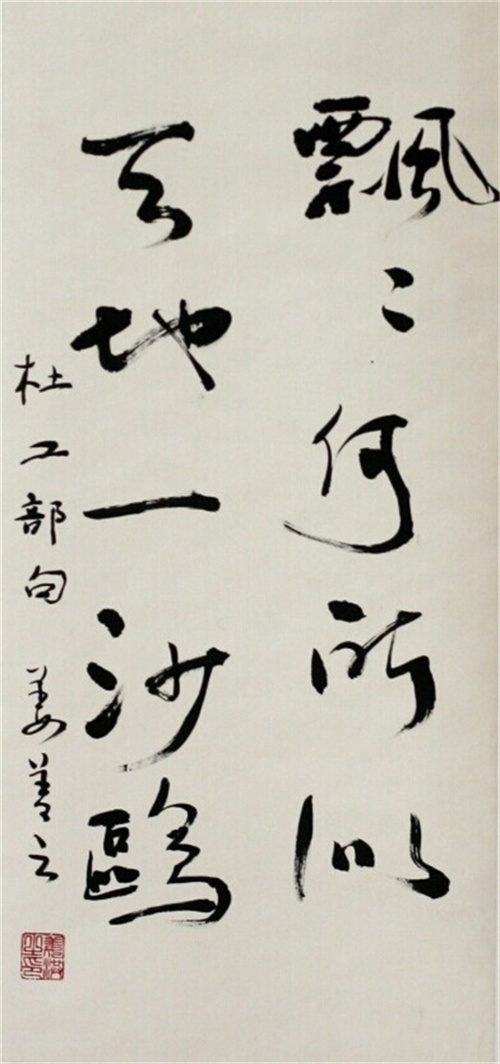 飄〻何所似
天地一沙鷗
杜工部句 姜